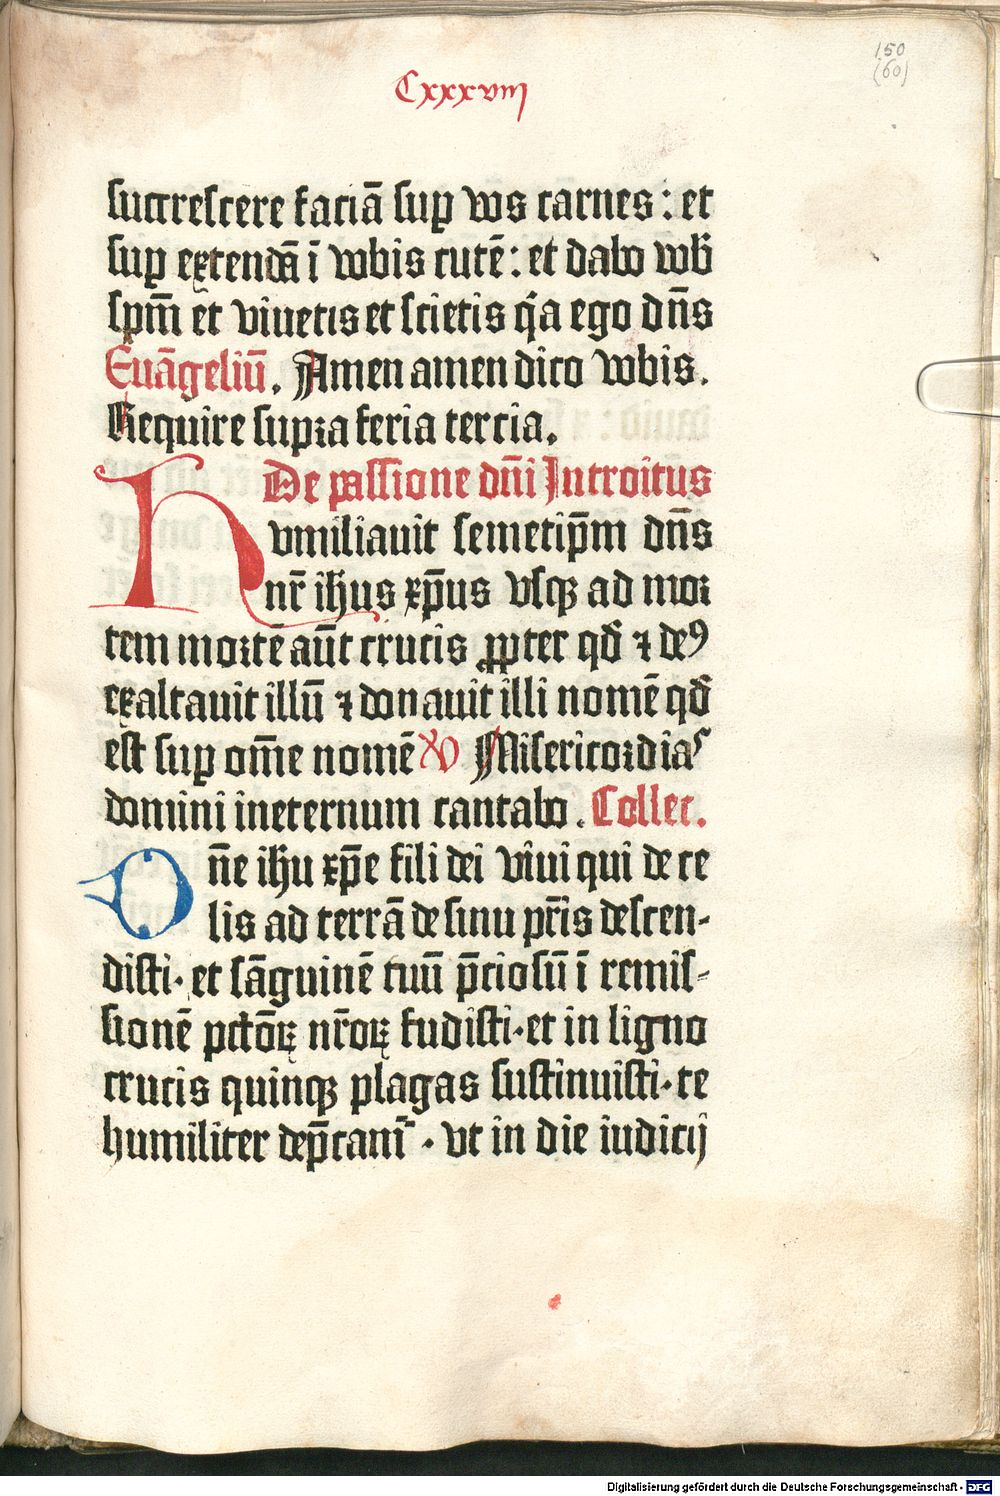 150
(60)
Cxxxviij
succrescere faciā suꝑ vos carnes : et
suꝑ extendā ī vobis cutē : et dabo vob̄
sp̄m et viuetis et scietis q́a ego dn̄s
Euāgeliū . Amen amen dico vobis .
Require supꝛa feria tercia .
De passione dn̄i Introitus
Hvmiliauit semetip̄m dn̄s
nr̄ ih̄us xp̄us vsqꝫ ad moꝛ
tem moꝛtē aūt crucis ꝓpter qđ ⁊ deꝰ
exaltauit illū ⁊ donauit illi nomē qđ
est suꝑ om̄e nomē V Misericoꝛdias
domini ineternum cantabo . Collec .
Dn̄e ih̄u xp̄e fili dei viui qui de ce
lis ad terrā de sinu pr̄is descen-
disti · et sāguinē tuū p̄ciosū ī remis-
sionē pctōꝝ nr̄oꝝ fudisti · et in ligno
crucis quinqꝫ plagas sustinuisti · te
humiliter dep̄camᷣ · vt in die iudicij
Digitalisierung gefördert durch die Deutsche Forschungsgemeinschaft - DFG